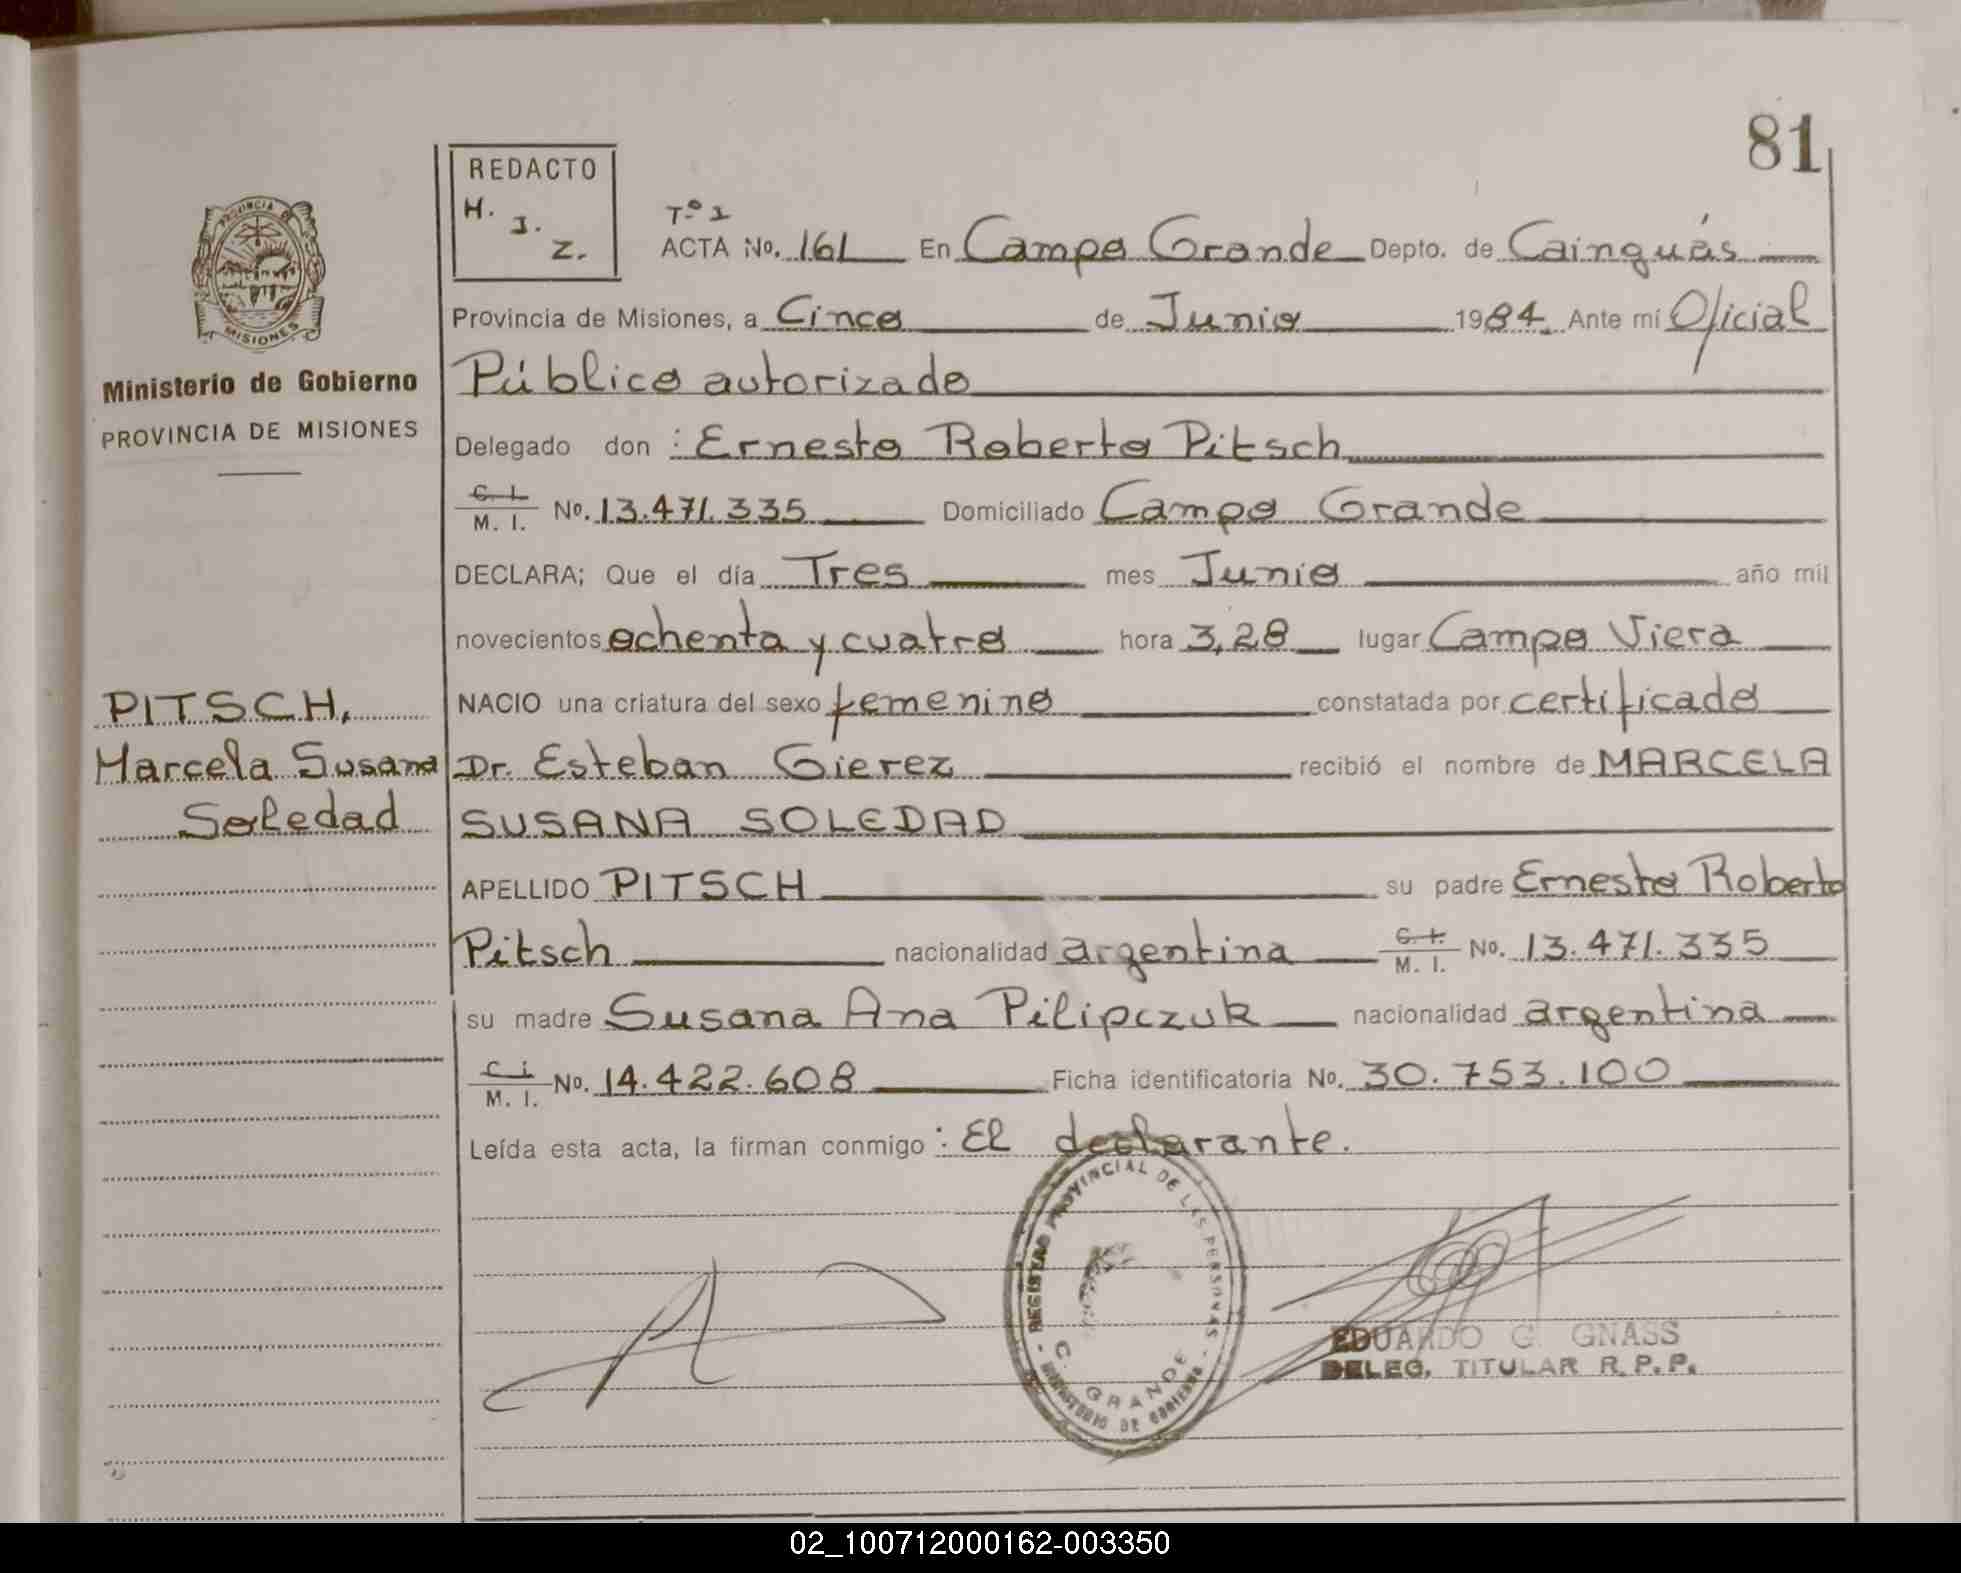 81
REDACTO
H. J. Z.
Tº I
ACTA No. 161 En Campo Grande Depto. de Cainguás
Provincia de Misiones, a Cinco de Junio 1984 Ante mí Oficial
Público autorizado
Delegado don : Ernesto Roberto Pitsch
C. I. M. I. No. 13.471.335 Domiciliado Campo Grande
DECLARA; Que el día Tres mes Junio año mil
novecientos ochenta y cuatro hora 3,28 lugar Campo Viera
NACIO una criatura del sexo femenino constatada por certificado
Dr. Esteban Gierez recibió el nombre de MARCELA
SUSANA SOLEDAD
APELLIDO PITSCH su padre Ernesto Roberto
Pitsch nacionalidad argentina C. I. M. I. No. 13.471.335
su madre Susana Ana Pilipczuk nacionalidad argentina
C. I. M. I. No. 14.422.608 Ficha identificatoria No. 30.753.100
Leída esta acta, la firman conmigo : El declarante.
PROVINCIA DE MISIONES
Ministerio de Gobierno
PROVINCIA DE MISIONES
PITSCH,
Marcela Susana
Soledad
REGISTRO PROVINCIAL DE LAS PERSONAS
C. GRANDE
MINISTERIO DE GOBIERNO
EDUARDO G. GNASS
DELEG. TITULAR R.P.P.
02_100712000162-003350